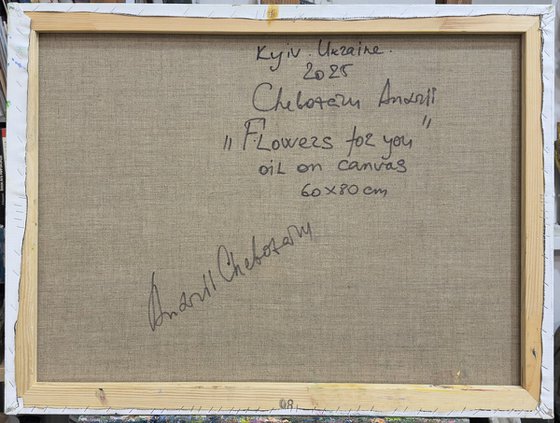 Kyiv. Ukraine.
2025
Chebotaru Andrii
"Flowers for you"
oil on canvas
60x80 cm
Andrii Chebotaru
08